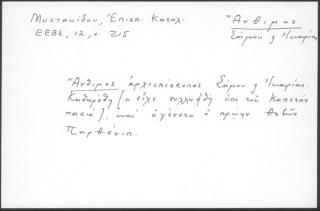 Μυστακίδου, Ἐπισκ. Κατάλ.
ΕΕΒΣ, 12, σ. 215
Ἄνθιμος
Σάμου κ Ἰκαρίας
Ἄνθιμος ἀρχιεπίσκοπος Σάμου κ Ἰκαρίας.
Καθῃρέθη [ εἶχε συλληφθῆ ὑπὸ τοῦ Καπετάν
πασιᾶ], καὶ ἐγένετο ὁ πρώην Θηβῶν
Παρθένιος.